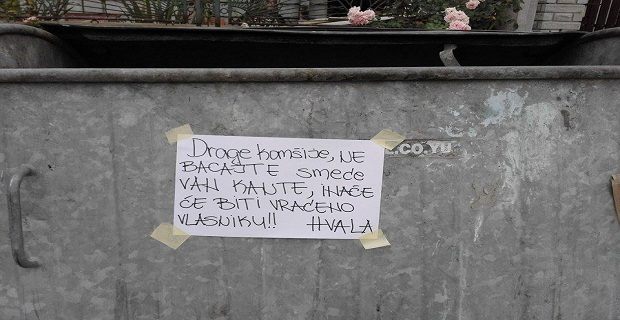 Drage komšije, NE
BACAJTE smeće
VAN KANTE, INAČE
ĆE BITI VRAĆENO
VLASNIKU!! HVALA
.CO.YU